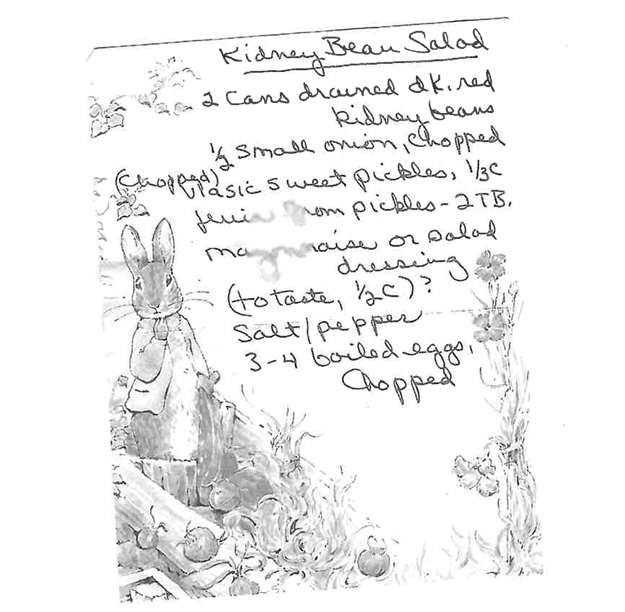 Kidney Bean Salad
2 Cans drained dk. red
kidney beans
1/2 small onion, chopped
(chopped) Vlasic sweet pickles, 1/3 C
pickles - 2 TB.
or salad
dressing
(to taste, 1/2 C)?
Salt/pepper
3-4 boiled eggs,
Chopped